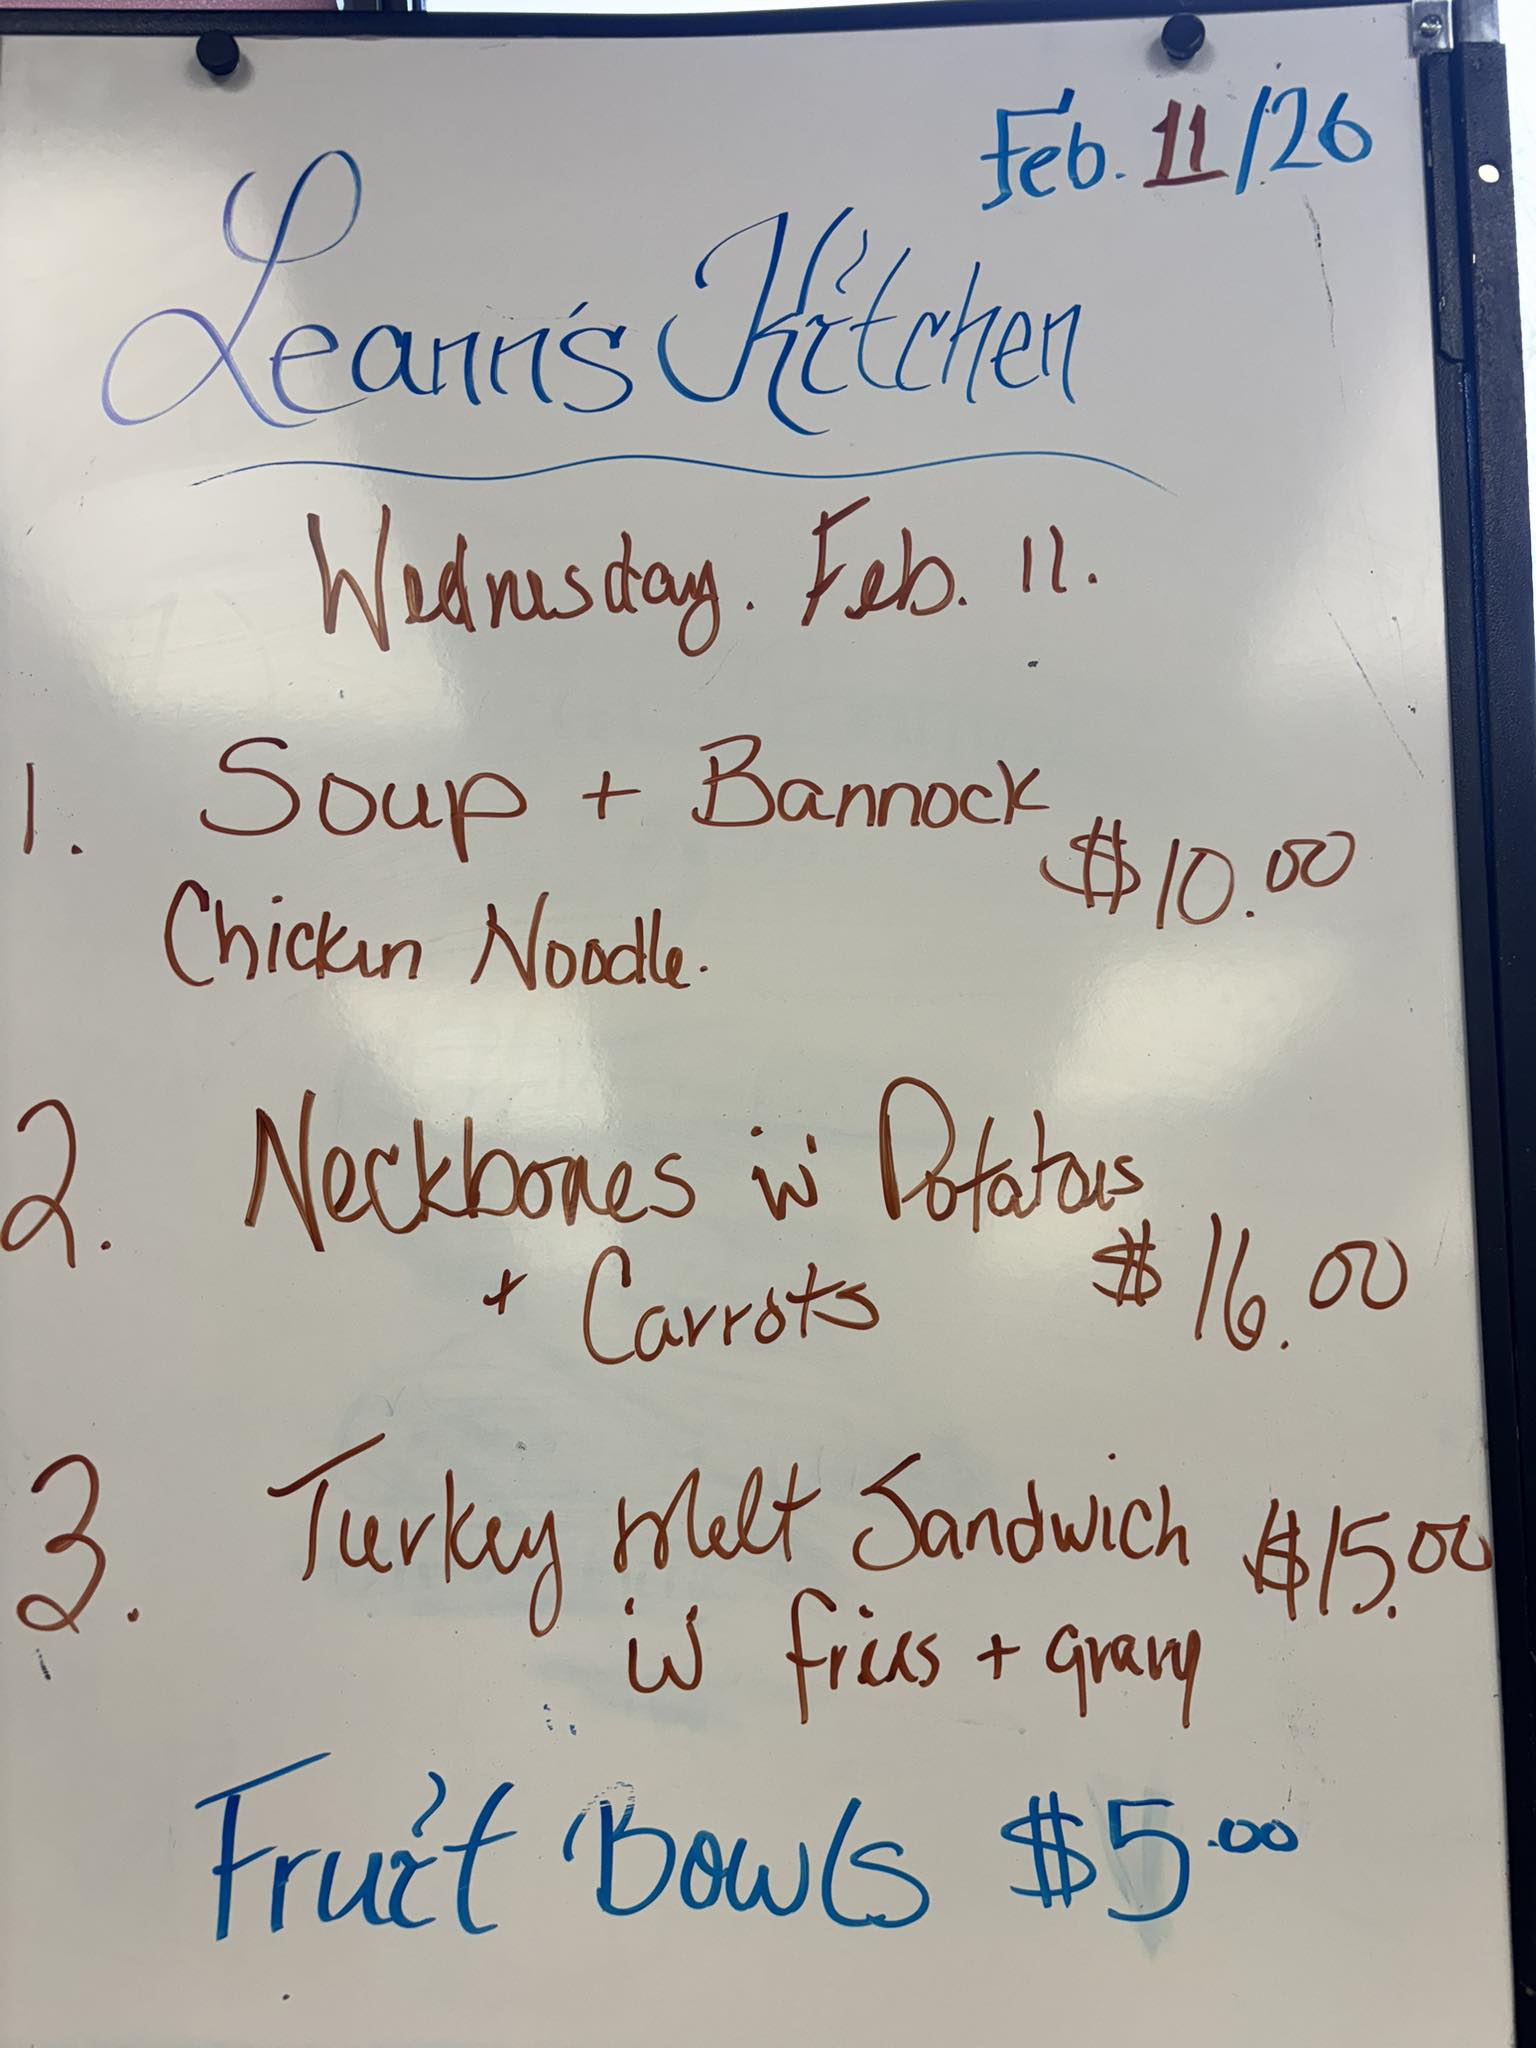 Feb. 11/26
Leann's Kitchen
Wednesday. Feb. 11.
1. Soup + Bannock
$10.00
Chicken Noodle.
2. Neckbones w Potatoes
+ Carrots $16.00
3. Turkey melt Sandwich $15.00
w fries + gravy
Fruit Bowls $5.00